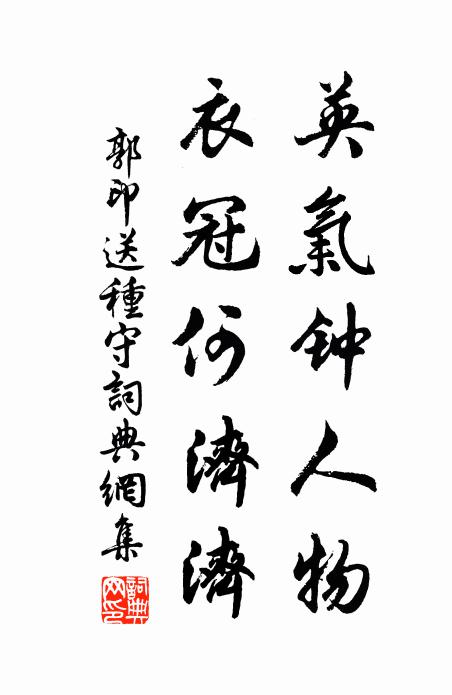 英氣钟人物
衣冠何濟濟
郭印送種守詞典網集
詞典网印